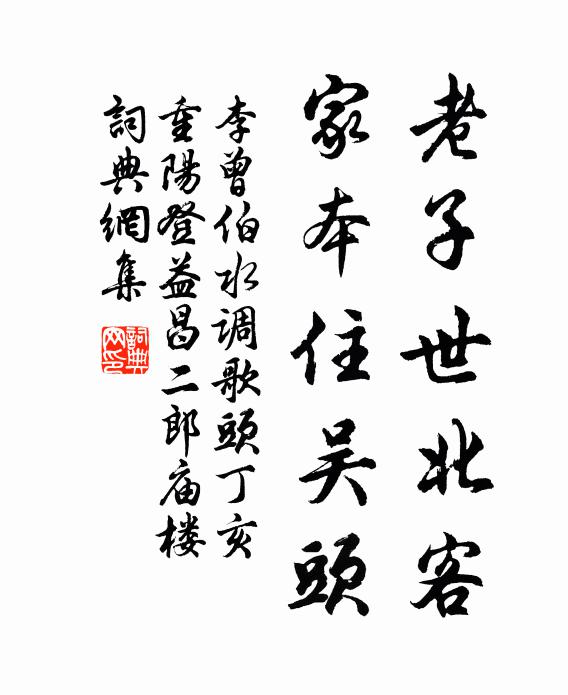 老子世北客
家本住吴頭
李曾伯水调歌頭丁亥
重陽登益昌二郎庙楼
詞典網集
詞典网印